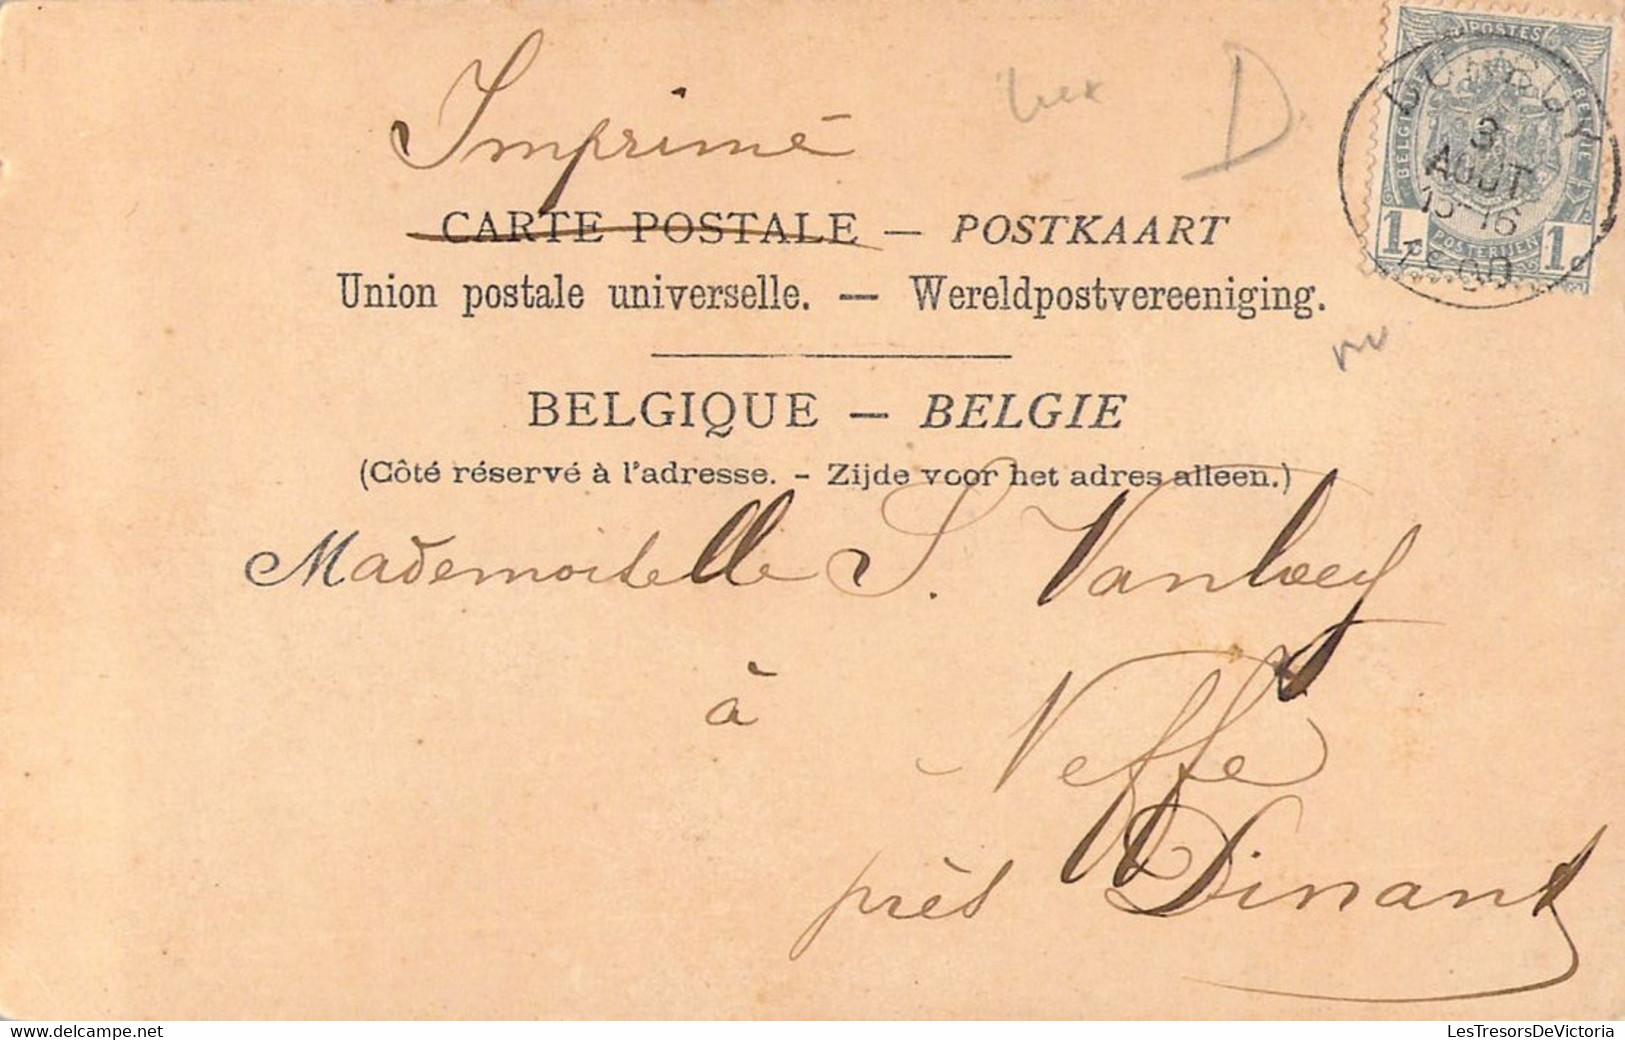 Imprimé
D
POSTES
BELGIQUE
BELGIË
DURBUY
3
AOUT
15-16
1900
1c 1c
POSTERIJEN
CARTE POSTALE — POSTKAART
Union postale universelle. — Wereldpostvereeniging.
BELGIQUE — BELGIE
(Côté réservé à l'adresse. - Zijde voor het adres alleen.)
Mademoiselle S. Vanloey
à
Neffe
près Dinant
delcampe.net
LesTresorsDeVictoria